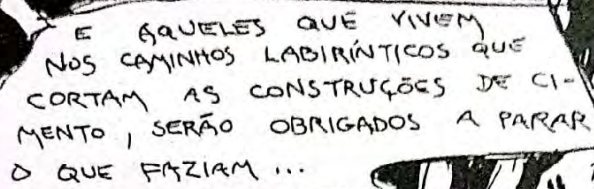 E AQUELES QUE VIVEM
NOS CAMINHOS LABIRÍNTICOS QUE
CORTAM AS CONSTRUÇÕES DE CI-
MENTO, SERÃO OBRIGADOS A PARAR
O QUE FAZIAM...